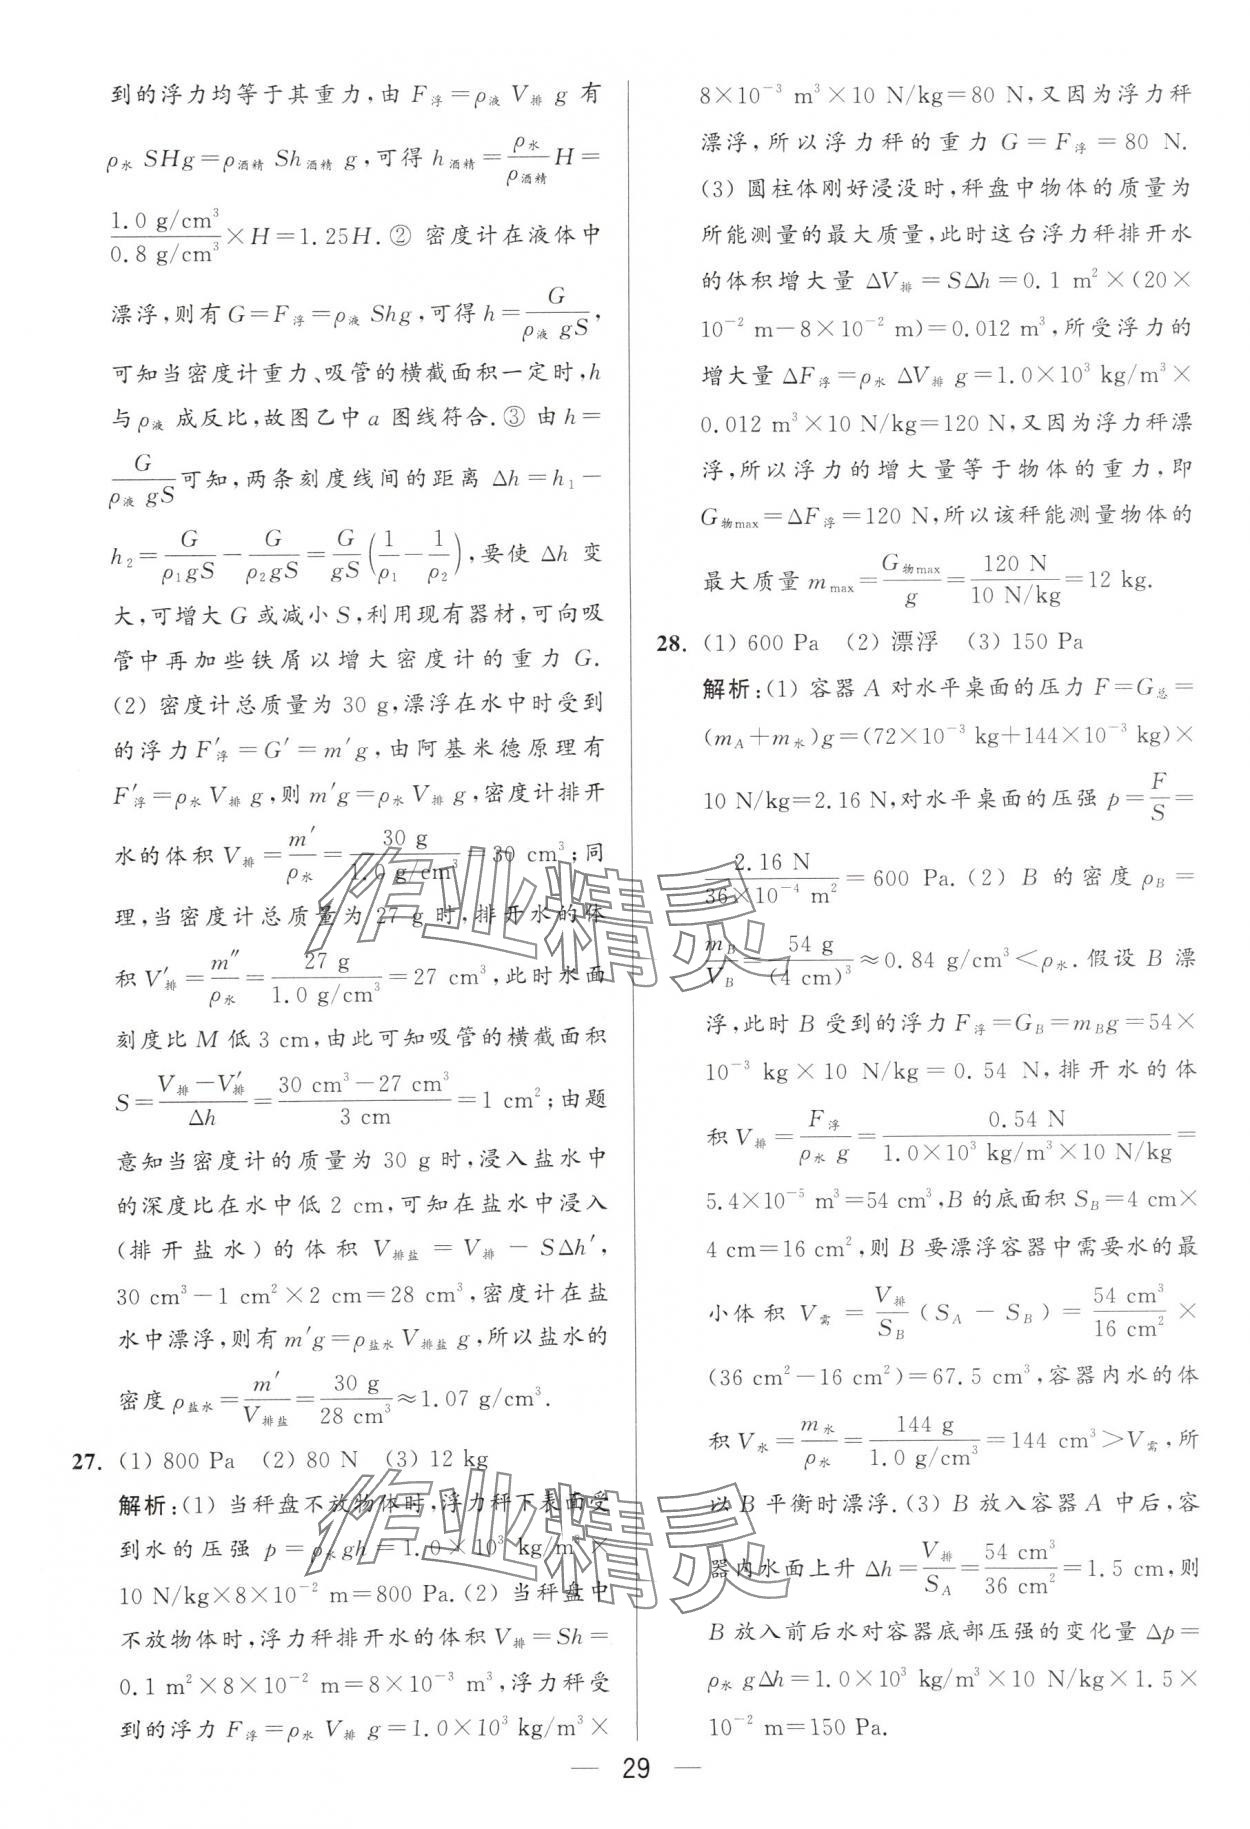 到的浮力均等于其重力,由 F浮=ρ液 V排 g 有
ρ水 SHg=ρ酒精 Sh酒精 g,可得 h酒精=ρ水/ρ酒精 H=
1.0 g/cm³/0.8 g/cm³×H=1.25H.② 密度计在液体中
漂浮,则有 G=F浮=ρ液 Shg,可得 h=G/ρ液 gS,
可知当密度计重力、吸管的横截面积一定时,h
与ρ液 成反比,故图乙中 a 图线符合.③ 由 h=
G/ρ液 gS可知,两条刻度线间的距离 Δh=h₁-
h₂=G/ρ₁gS-G/ρ₂gS=G/gS(1/ρ₁-1/ρ₂),要使 Δh 变
大,可增大 G 或减小 S,利用现有器材,可向吸
管中再加些铁屑以增大密度计的重力 G.
(2) 密度计总质量为 30 g,漂浮在水中时受到
的浮力 F′浮=G′=m′g,由阿基米德原理有
F′浮=ρ水 V排 g,则 m′g=ρ水 V排 g,密度计排开
水的体积 V排=m′/ρ水=30 g/1.0 g/cm³=30 cm³;同
理,当密度计总质量为 27 g 时,排开水的体
积 V′排=m″/ρ水=27 g/1.0 g/cm³=27 cm³,此时水面
刻度比 M 低 3 cm,由此可知吸管的横截面积
S=V排-V′排/Δh=30 cm³-27 cm³/3 cm=1 cm²;由题
意知当密度计的质量为 30 g 时,浸入盐水中
的深度比在水中低 2 cm,可知在盐水中浸入
(排开盐水)的体积 V排盐=V排-SΔh′,
30 cm³-1 cm²×2 cm=28 cm³,密度计在盐
水中漂浮,则有 m′g=ρ盐水 V排盐 g,所以盐水的
密度 ρ盐水=m′/V排盐=30 g/28 cm³≈1.07 g/cm³.
27. (1) 800 Pa (2) 80 N (3) 12 kg
解析:(1) 当秤盘不放物体时,浮力秤下表面受
到水的压强 p=ρ水gh=1.0×10³ kg/m³×
10 N/kg×8×10⁻² m=800 Pa.(2) 当秤盘中
不放物体时,浮力秤排开水的体积 V排=Sh=
0.1 m²×8×10⁻² m=8×10⁻³ m³,浮力秤受
到的浮力 F浮=ρ水 V排 g=1.0×10³ kg/m³×
8×10⁻³ m³×10 N/kg=80 N,又因为浮力秤
漂浮,所以浮力秤的重力 G=F浮=80 N.
(3) 圆柱体刚好浸没时,秤盘中物体的质量为
所能测量的最大质量,此时这台浮力秤排开水
的体积增大量 ΔV排=SΔh=0.1 m²×(20×
10⁻² m-8×10⁻² m)=0.012 m³,所受浮力的
增大量 ΔF浮=ρ水 ΔV排 g=1.0×10³ kg/m³×
0.012 m³×10 N/kg=120 N,又因为浮力秤漂
浮,所以浮力的增大量等于物体的重力,即
G物max=ΔF浮=120 N,所以该秤能测量物体的
最大质量 mmax=G物max/g=120 N/10 N/kg=12 kg.
28. (1) 600 Pa (2) 漂浮 (3) 150 Pa
解析:(1) 容器 A 对水平桌面的压力 F=G总=
(mA+m水)g=(72×10⁻³ kg+144×10⁻³ kg)×
10 N/kg=2.16 N,对水平桌面的压强 p=F/S=
2.16 N/36×10⁻⁴ m²=600 Pa.(2) B 的密度 ρB=
mB/VB=54 g/(4 cm)³≈0.84 g/cm³<ρ水.假设 B 漂
浮,此时 B 受到的浮力 F浮=GB=mBg=54×
10⁻³ kg×10 N/kg=0.54 N,排开水的体
积 V排=F浮/ρ水 g=0.54 N/1.0×10³ kg/m³×10 N/kg=
5.4×10⁻⁵ m³=54 cm³,B 的底面积 SB=4 cm×
4 cm=16 cm²,则 B 要漂浮容器中需要水的最
小体积 V需=V排/SB(SA-SB)=54 cm³/16 cm²×
(36 cm²-16 cm²)=67.5 cm³,容器内水的体
积 V水=m水/ρ水=144 g/1.0 g/cm³=144 cm³>V需,所
以 B 平衡时漂浮.(3) B 放入容器 A 中后,容
器内水面上升 Δh=V排/SA=54 cm³/36 cm²=1.5 cm,则
B 放入前后水对容器底部压强的变化量 Δp=
ρ水 gΔh=1.0×10³ kg/m³×10 N/kg×1.5×
10⁻² m=150 Pa.
作业精灵
作业精灵
29